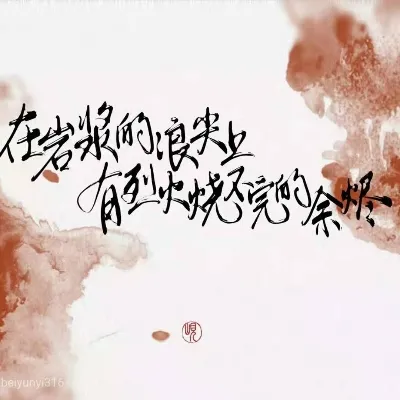 在岩浆的浪尖上
有烈火烧不完的余烬
岘
beiyunyi315